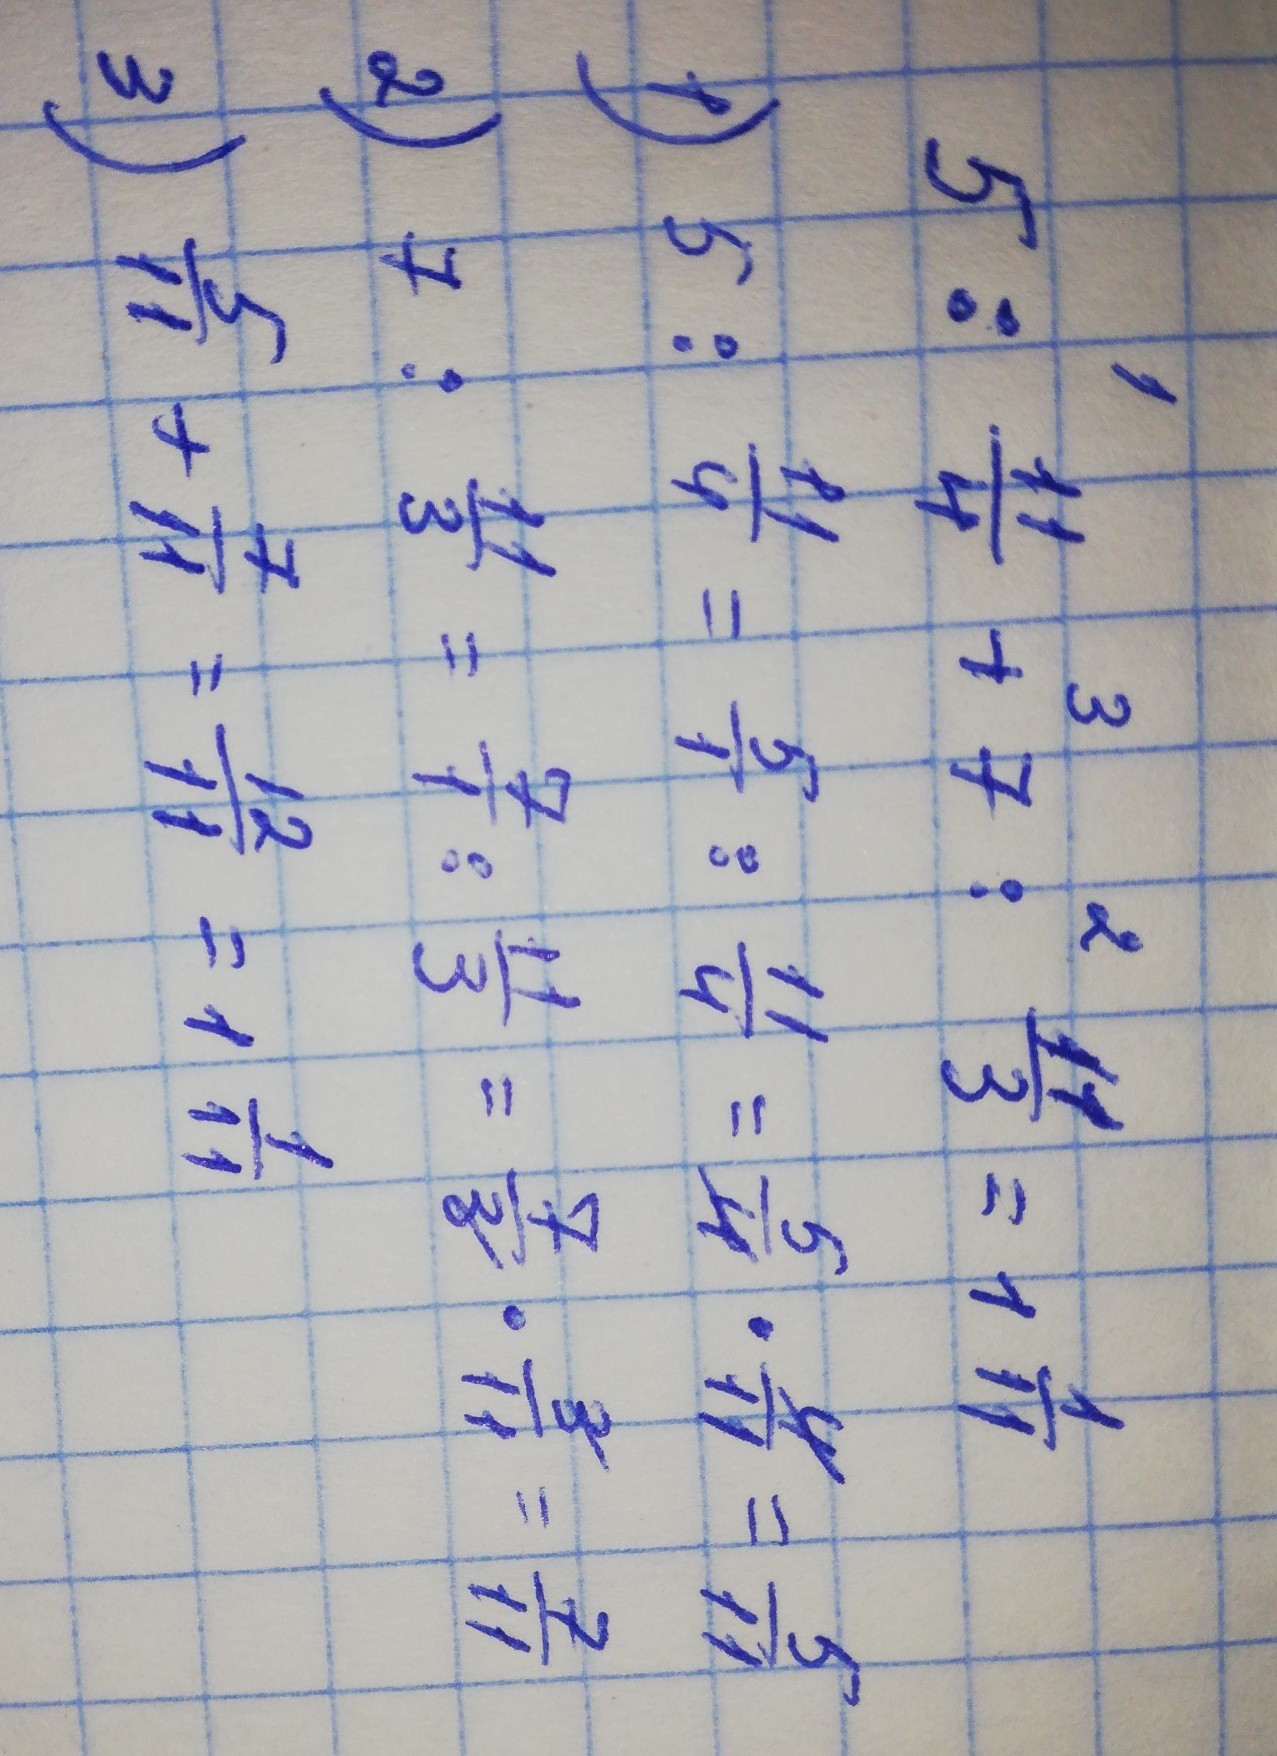 1 3 2
5 : 11/4 + 7 : 11/3 = 1 1/11
1) 5 : 11/4 = 5/1 : 11/4 = 5/4 · 4/11 = 5/11
2) 7 : 11/3 = 7/1 : 11/3 = 7/3 · 3/11 = 7/11
3) 5/11 + 7/11 = 12/11 = 1 1/11